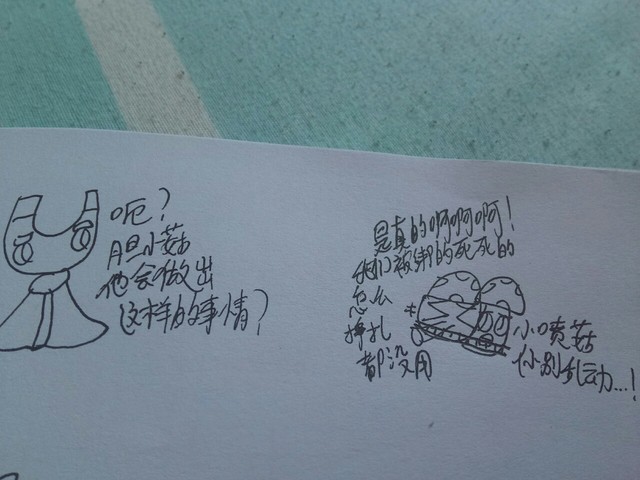 呃?
胆小菇
他会做出
这样的事情?
是真的啊啊啊!
我们被绑的死死的
怎么
挣扎
都没用
小喷菇
你别乱动...!